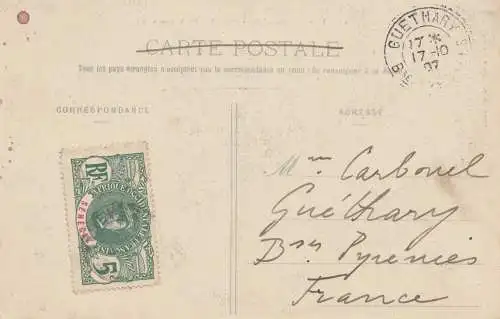 CARTE POSTALE
Tous les pays étrangers n'acceptent pas la correspondance au recto
CORRESPONDANCE
ADRESSE
GUETHARY
17 *
17-10
07
Bses
RF
AFRIQUE OCCIDENTALE FRANÇAISE
SÉNÉGAL
5
Mme Carbonel
Guéthary
Bses Pyrénées
France